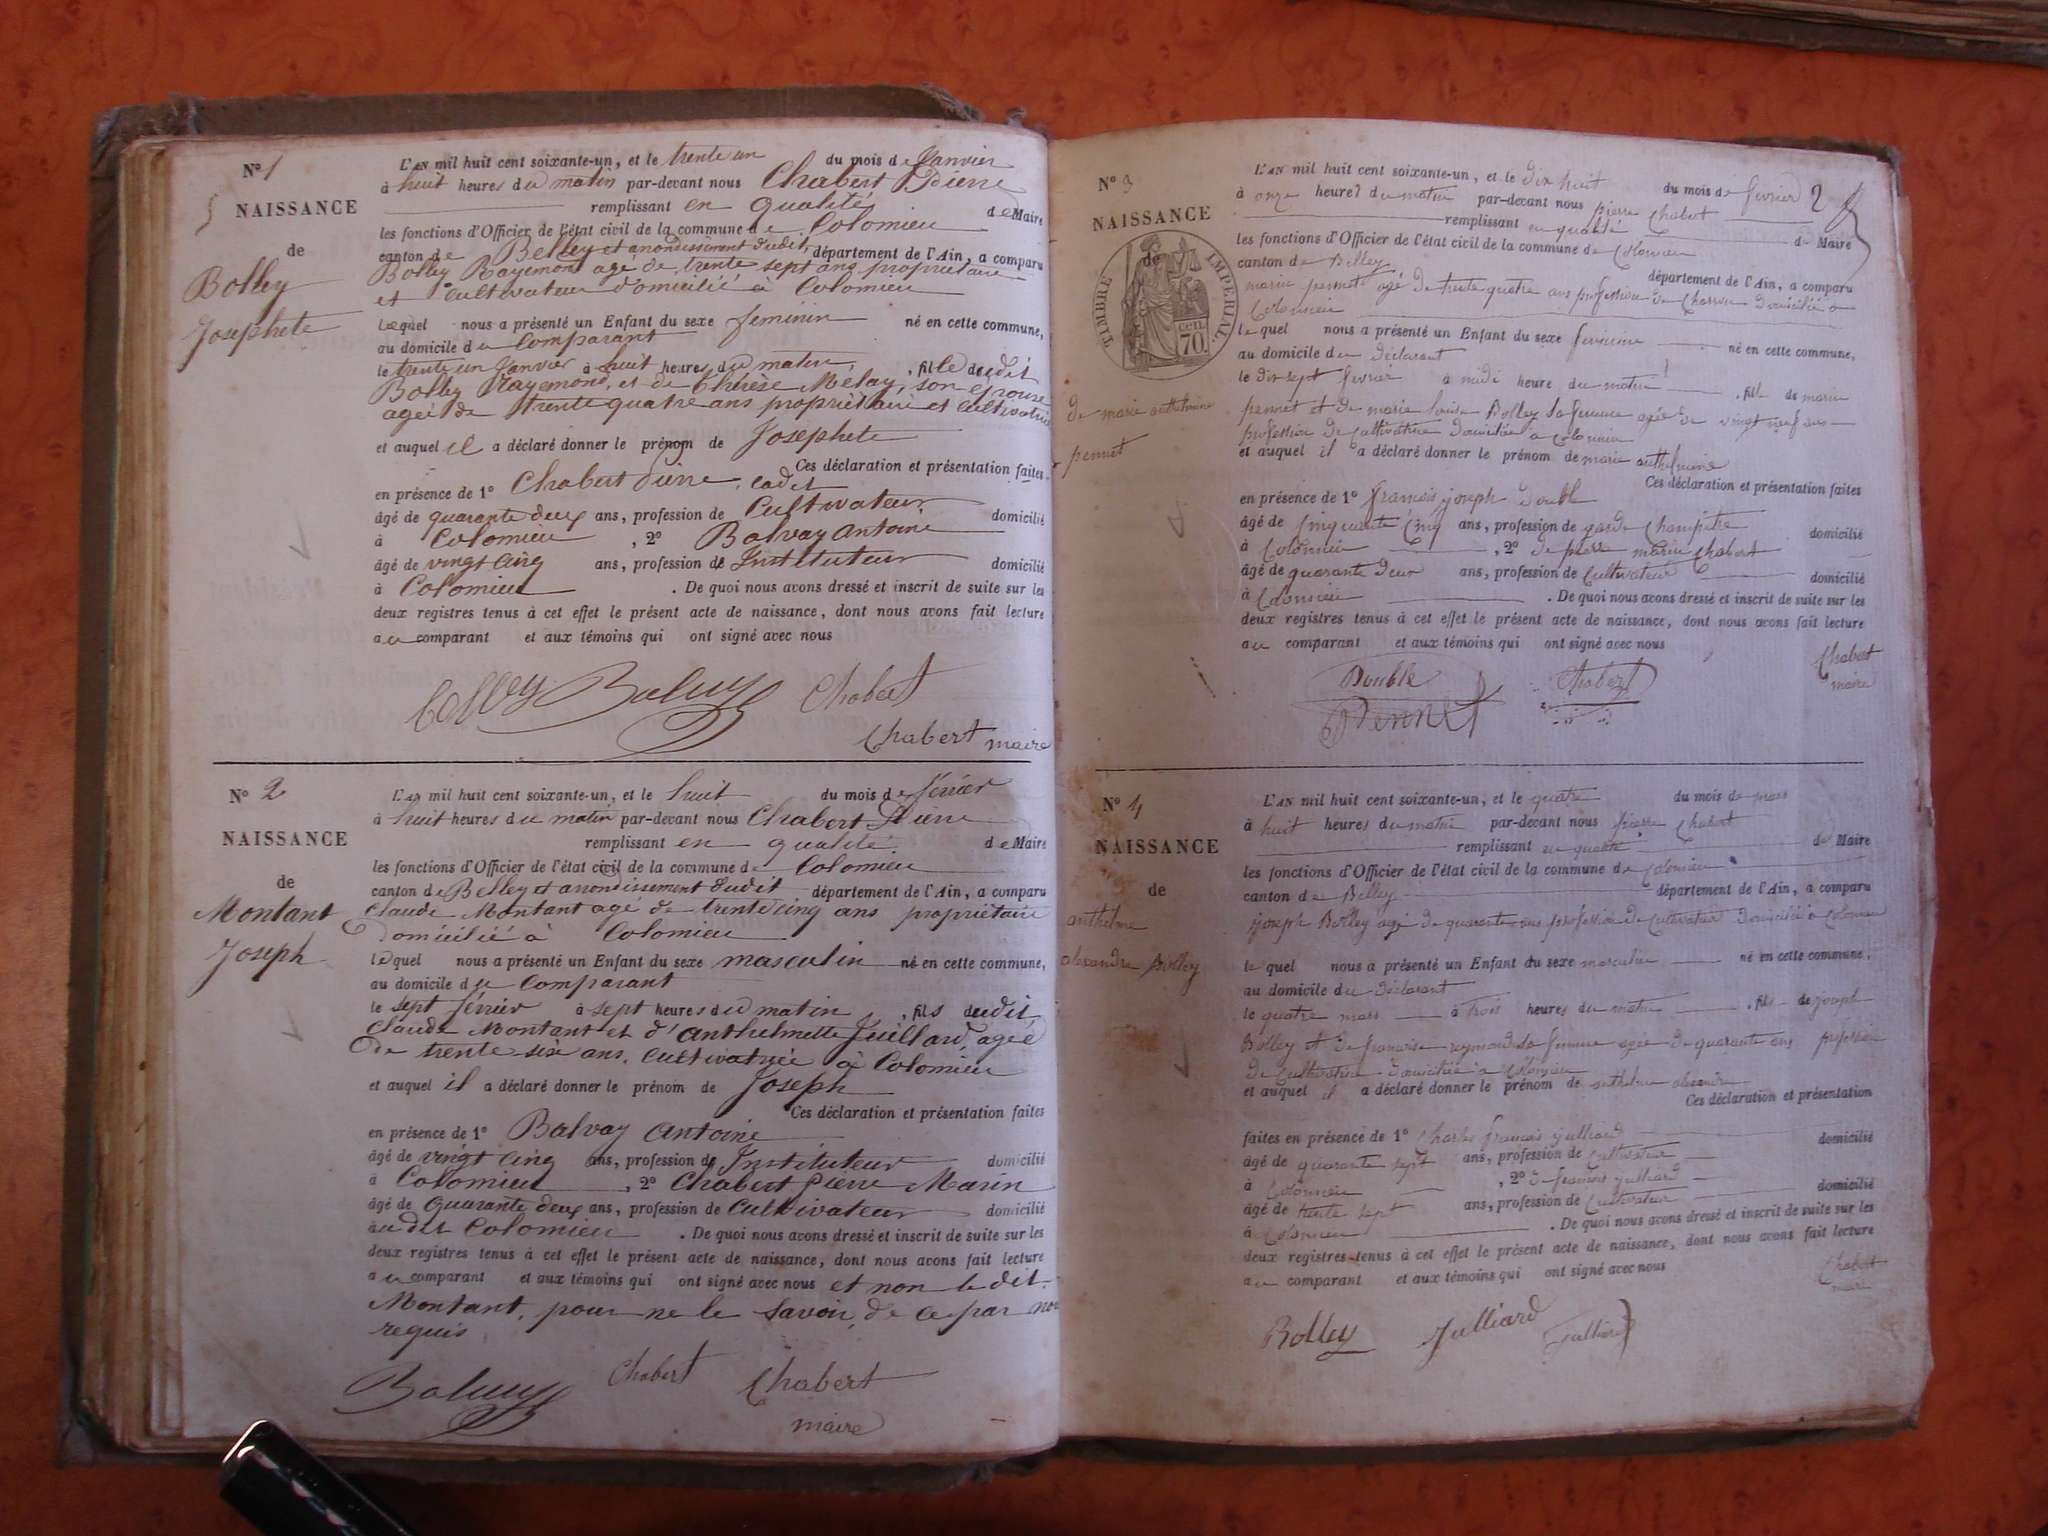 N° 1
NAISSANCE
de
Bolley
Josephete
L'AN mil huit cent soixante-un, et le trente un du mois de Janvier
à huit heures du matin par-devant nous Chabert Pierre
remplissant en qualité de Maire
les fonctions d'Officier de l'état civil de la commune de Colomieu
canton de Belley et arrondissement dudit département de l'Ain, a comparu
Bolley Rayemond agé de trente sept ans propriétaire
et cultivateur domicilié à Colomieu
lequel nous a présenté un Enfant du sexe féminin né en cette commune,
au domicile du Comparant
le trente un Janvier à huit heures du matin, fille dudit
Bolley Raymond, et de Thérèse Mélay, son épouse
agée de trente quatre ans propriétaire et cultivatrice
et auquel il a déclaré donner le prénom de Josephete
Ces déclaration et présentation faites
en présence de 1° Chabert Pierre, cadet
âgé de quarante deux ans, profession de Cultivateur, domicilié
à Colomieu, 2° Balvay Antoine
âgé de vingt cinq ans, profession de Instituteur domicilié
à Colomieu. De quoi nous avons dressé et inscrit de suite sur les
deux registres tenus à cet effet le présent acte de naissance, dont nous avons fait lecture
au comparant et aux témoins qui ont signé avec nous
Bolley Balvay Chabert
Chabert maire
N° 2
NAISSANCE
de
Montant
Joseph
L'AN mil huit cent soixante-un, et le huit du mois de février
à huit heures du matin par-devant nous Chabert Pierre
remplissant en qualité de Maire
les fonctions d'Officier de l'état civil de la commune de Colomieu
canton de Belley et arrondissement dudit département de l'Ain, a comparu
Claude Montant agé de trente cinq ans propriétaire
domicilié à Colomieu
lequel nous a présenté un Enfant du sexe masculin né en cette commune,
au domicile du Comparant
le sept février à sept heures du matin, fils dudit
Claude Montant et d'Anthelmette Juillard, agée
de trente six ans, cultivatrice à Colomieu
et auquel il a déclaré donner le prénom de Joseph
Ces déclaration et présentation faites
en présence de 1° Balvay Antoine
âgé de vingt cinq ans, profession de Instituteur domicilié
à Colomieu, 2° Chabert Pierre Marin
âgé de Quarante deux ans, profession de Cultivateur domicilié
au dit Colomieu. De quoi nous avons dressé et inscrit de suite sur les
deux registres tenus à cet effet le présent acte de naissance, dont nous avons fait lecture
au comparant et aux témoins qui ont signé avec nous et non le dit
Montant, pour ne le savoir, de ce par nous
requis
Balvay Chabert Chabert
maire
2
N° 3
NAISSANCE
de
TIMBRE IMPÉRIAL
70 cen.
de marie anthelmine
pennet
L'AN mil huit cent soixante-un, et le dix huit du mois de février
à onze heures du matin par-devant nous pierre Chabert
remplissant en qualité de Maire
les fonctions d'Officier de l'état civil de la commune de Colomieu
canton de Belley département de l'Ain, a comparu
marin pennet agé de trente quatre ans profession de Charron domicilié a
Colomieu
lequel nous a présenté un Enfant du sexe féminine né en cette commune,
au domicile du Déclarant
le dix sept février à midi heure du matin, fille de marin
pennet et de marie louise Bolley sa femme agée de vingt neuf ans
profession de Cultivatrice domiciliée a Colomieu
et auquel il a déclaré donner le prénom de marie anthelmine
Ces déclaration et présentation faites
en présence de 1° francois joseph Double
âgé de cinquante cinq ans, profession de garde Champêtre domicilié
à Colomieu, 2° de pierre marin Chabert
âgé de quarante deux ans, profession de Cultivateur domicilié
à Colomieu. De quoi nous avons dressé et inscrit de suite sur les
deux registres tenus à cet effet le présent acte de naissance, dont nous avons fait lecture
au comparant et aux témoins qui ont signé avec nous
Double Chabert Chabert
maire
Pennet
N° 4
NAISSANCE
de
anthelme
alexandre Bolley
L'AN mil huit cent soixante-un, et le quatre du mois de mars
à huit heures du matin par-devant nous pierre Chabert
remplissant en qualité de Maire
les fonctions d'Officier de l'état civil de la commune de Colomieu
canton de Belley département de l'Ain, a comparu
joseph Bolley agé de quarante ans profession de Cultivateur domicilié a Colomieu
lequel nous a présenté un Enfant du sexe masculin né en cette commune,
au domicile du Déclarant
le quatre mars à trois heures du matin, fils de joseph
Bolley et de francoise reymond sa femme agée de quarante ans profession
de Cultivatrice domiciliée a Colomieu
et auquel il a déclaré donner le prénom de anthelme alexandre
Ces déclaration et présentation
faites en présence de 1° Charles francois julliard domicilié
âgé de quarante sept ans, profession de Cultivateur
à Colomieu, 2° de francois julliard
âgé de trente sept ans, profession de Cultivateur domicilié
à Colomieu. De quoi nous avons dressé et inscrit de suite sur les
deux registres tenus à cet effet le présent acte de naissance, dont nous avons fait lecture
au comparant et aux témoins qui ont signé avec nous
Chabert
maire
Bolley Julliard Julliard